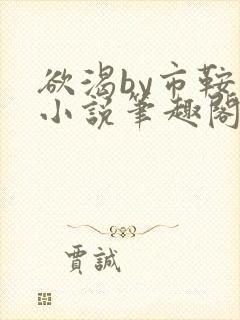 欲渴by市鞍
小説筆趣閣
賈誠